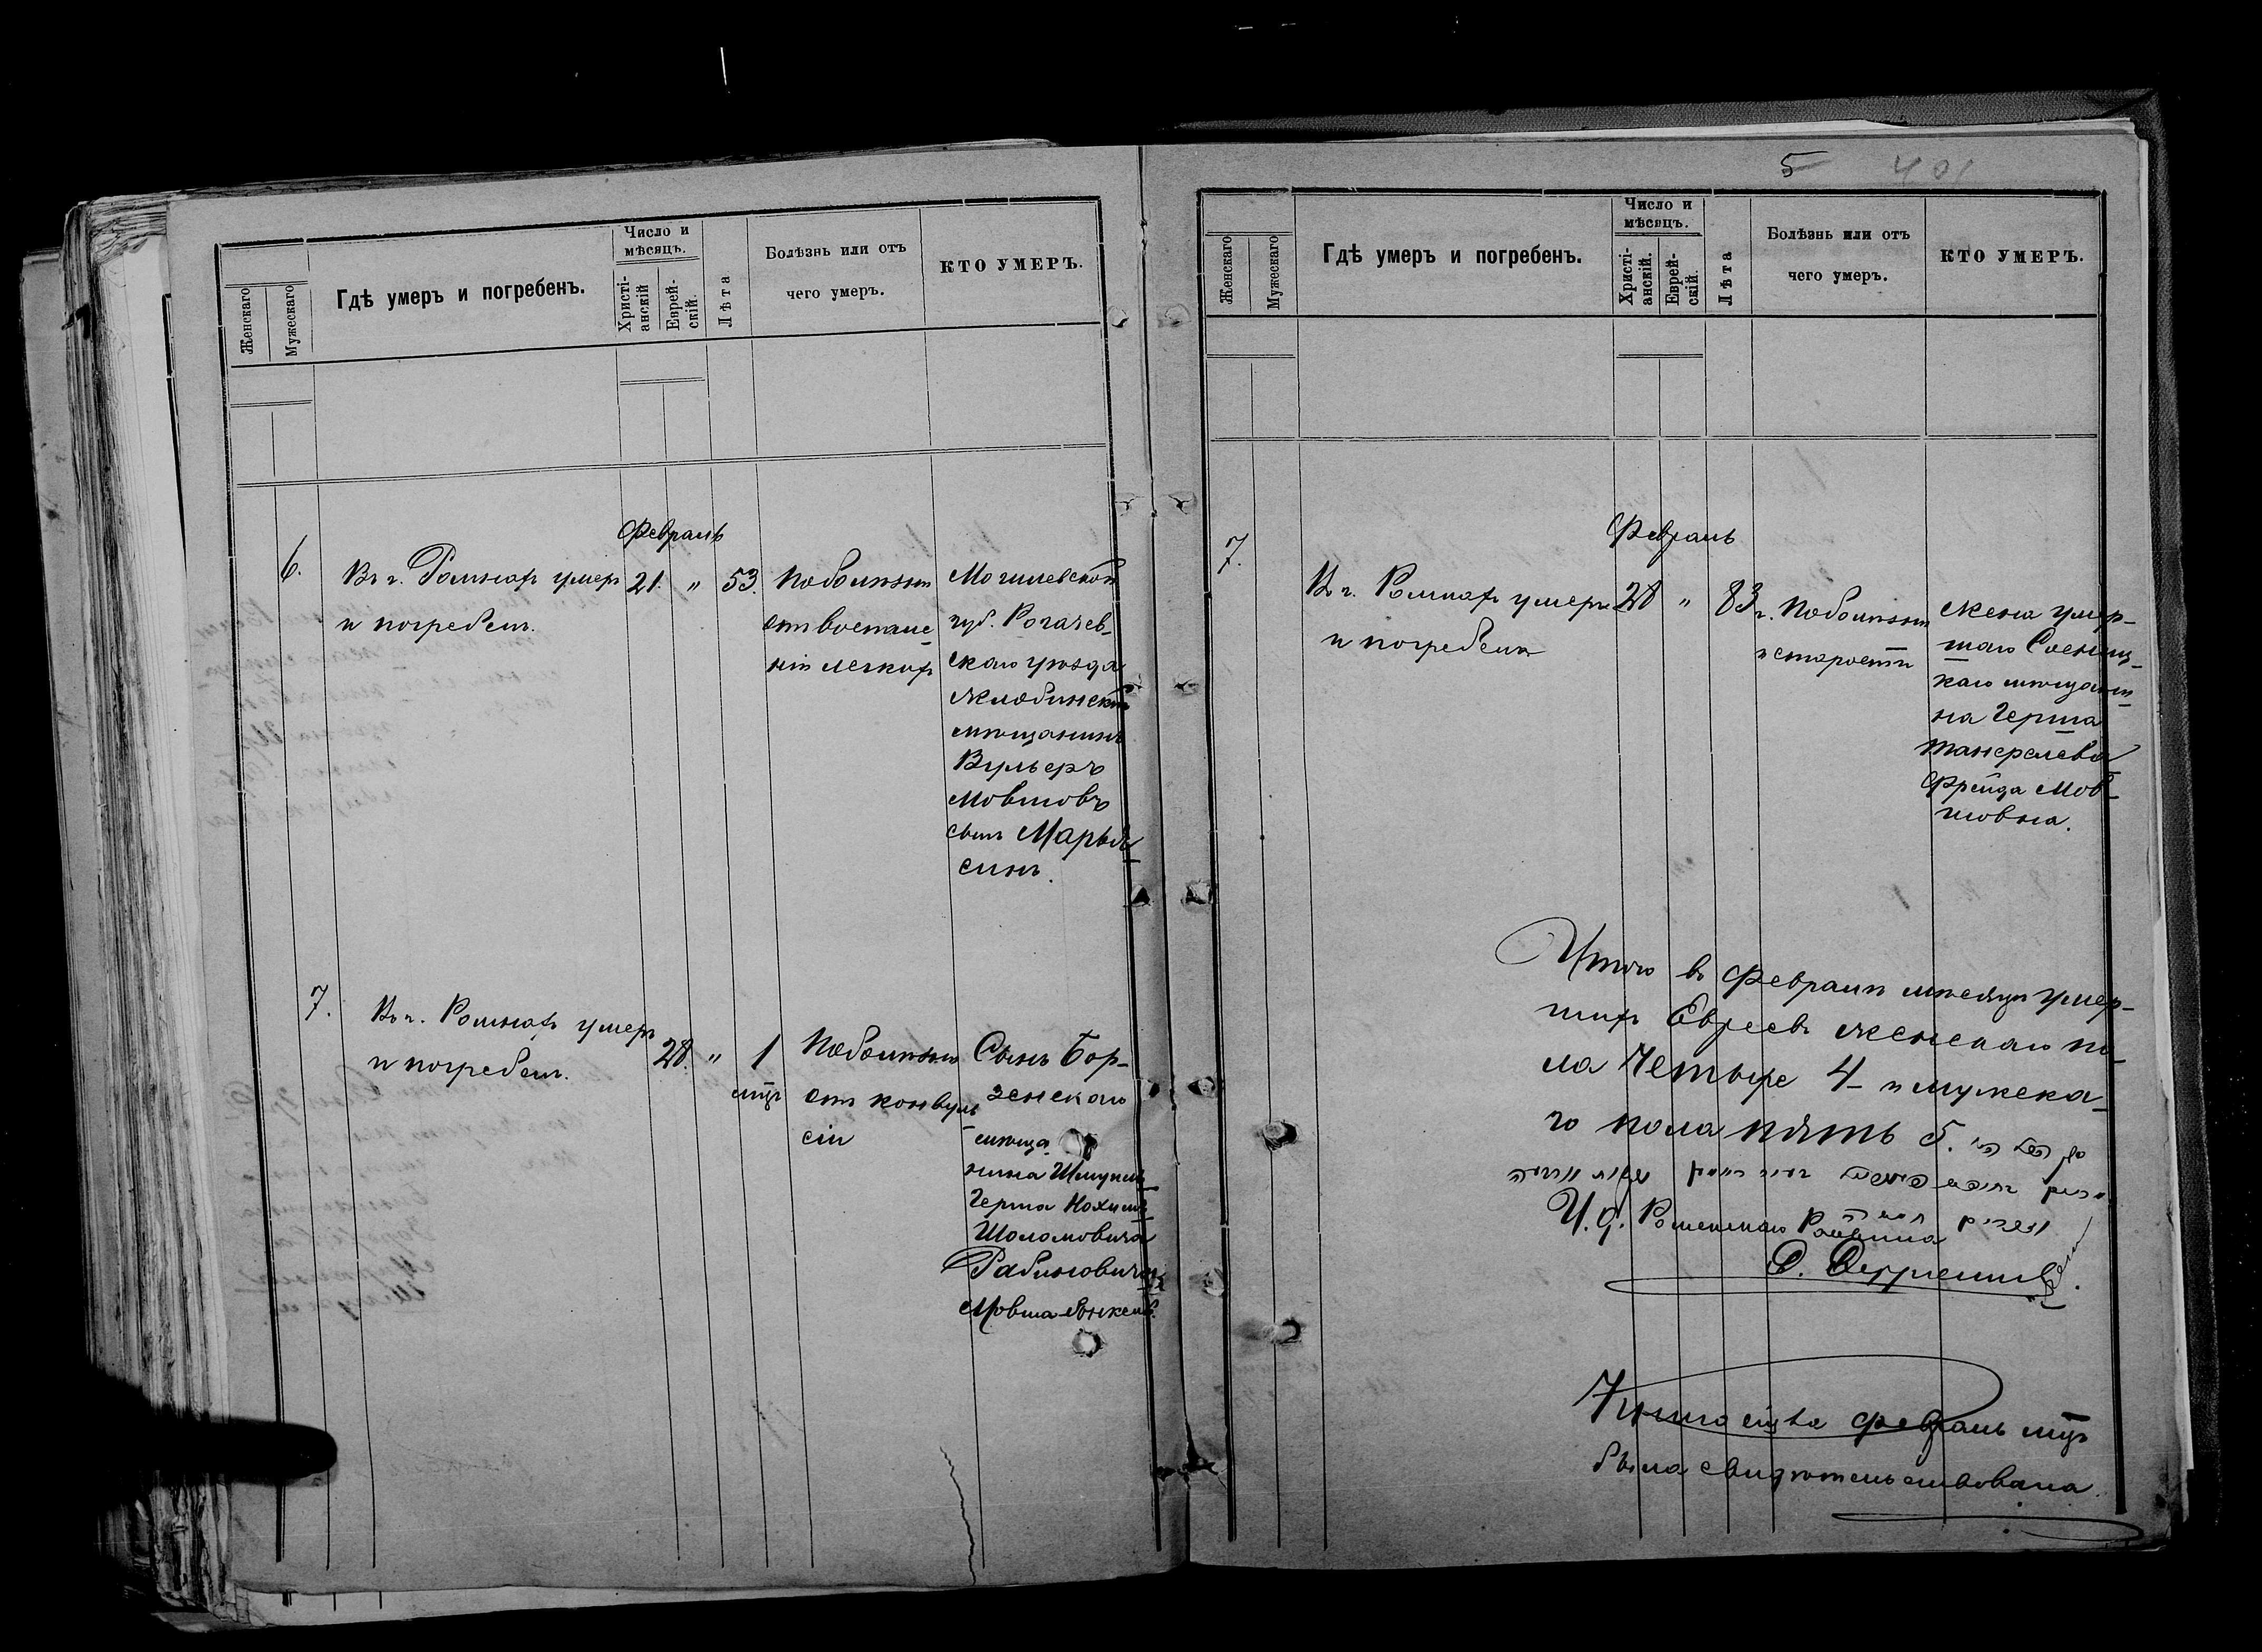 Женскаго
Мужескаго
Гдѣ умеръ и погребенъ.
Число и мѣсяцъ.
Христі-анскій
Еврей-скій.
Лѣта
Болѣзнь или отъ
чего умеръ.
КТО УМЕРЪ.
Февраль
6.
Въ г. Ромнахъ умеръ
и погребенъ.
21.
"
53.
По болѣзни
отъ воспале-
нія легкихъ
Могилевской
губ. Рогачев-
скаго уѣзда
Жлобинскій
мѣщанинъ
Вульеръ
Мовшовъ
сынъ Марья-
синъ.
7.
Въ г. Ромнахъ умеръ
и погребенъ.
28.
"
1
мцъ
По болѣзни
отъ конвуль
сіи
Сынъ Бор-
зенскаго
мѣща
нина Шмуиль
Герша Нохимъ
Шоломовича
Рабиновича
Мовша Янкель.
5 401
Женскаго
Мужескаго
Гдѣ умеръ и погребенъ.
Число и мѣсяцъ.
Христі-анскій.
Еврей-скій.
Лѣта
Болѣзнь или отъ
чего умеръ.
КТО УМЕРЪ.
Февраль
7.
Въ г. Ромнахъ умерла
и погребена
28
"
83
г. По болѣзни
и старости
жена умер-
шаго Сосниц-
каго мѣщани-
на Герша
Фрейда Мов-
шовна.
Итого въ Февралѣ мѣсяцѣ умер-
шихъ Евреевъ женскаго по-
ла Четыре 4 и мужска-
го пола пять 5.
И. д. Роменскаго Раввина
Книга сія за Февраль мцъ
была свидѣтельствована.